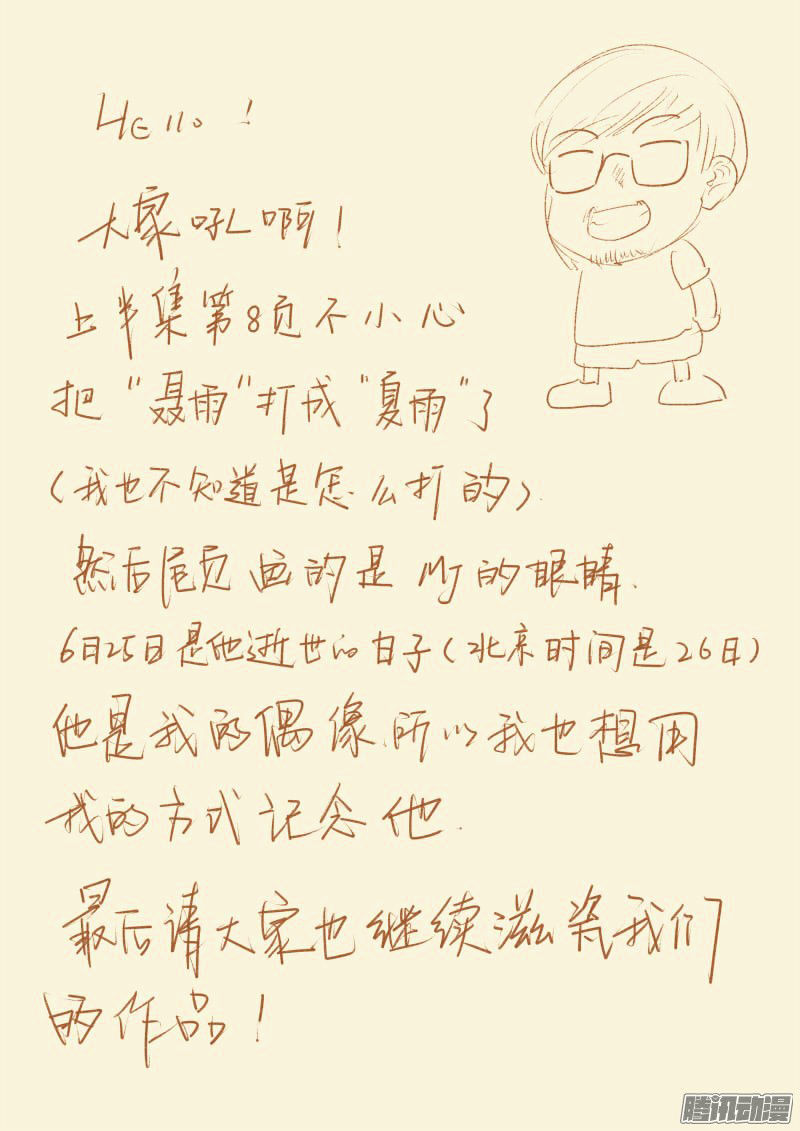 Hello!
大家吼啊!
上半集第8页不小心
把"聂雨"打成"夏雨"了
(我也不知道是怎么打的).
然后尾页画的是MJ的眼睛.
6月25日是他逝世的日子(北京时间是26日)
他是我的偶像.所以我也想用
我的方式记念他.
最后请大家也继续滋瓷我们
的作品!
腾讯动漫